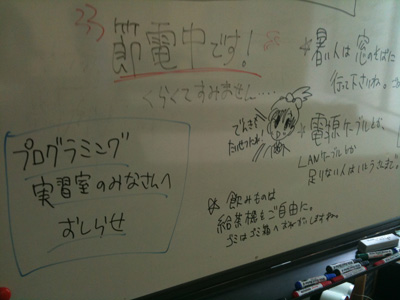 節電中です!
くらくてすみません・・・・
プログラミング
実習室のみなさんへ
おしらせ
でんきを
たいせつにね!
*暑い人は窓のそばに
行って下さいね。
*電源ケーブルとか、
LANケーブルとか
足りない人はいいうさまで。
飲みものは
給茶機をご自由に。
ゴミはゴミ箱へおねがいしますね。